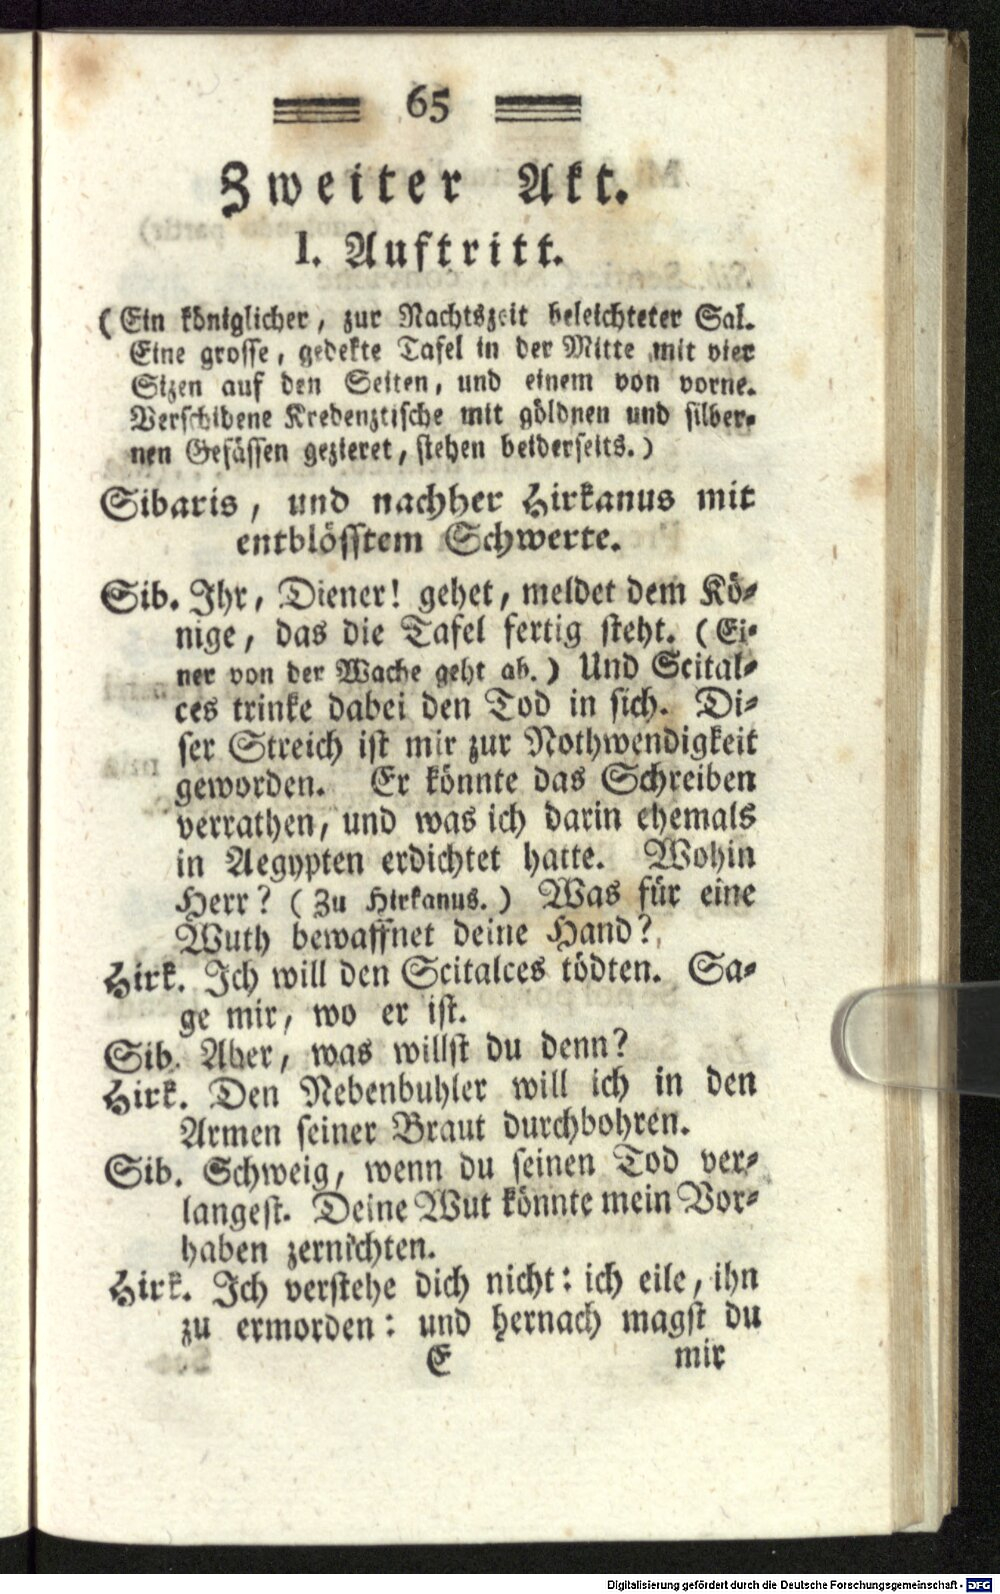 65
Zweiter Akt.
I. Auftritt.
(Ein königlicher, zur Nachtszeit beleichteter Sal.
Eine grosse, gedekte Tafel in der Mitte mit vier
Sizen auf den Seiten, und einem von vorne.
Verschidene Kredenztische mit göldnen und silber-
nen Gefässen gezieret, stehen beiderseits.)
Sibaris, und nachher Hirkanus mit
entblösstem Schwerte.
Sib. Ihr, Diener! gehet, meldet dem Kö-
nige, das die Tafel fertig steht. (Ei-
ner von der Wache geht ab.) Und Scital-
ces trinke dabei den Tod in sich. Di-
ser Streich ist mir zur Nothwendigkeit
geworden. Er könnte das Schreiben
verrathen, und was ich darin ehemals
in Aegypten erdichtet hatte. Wohin
Herr? (Zu Hirkanus.) Was für eine
Wuth bewaffnet deine Hand?
Hirk. Ich will den Scitalces tödten. Sa-
ge mir, wo er ist.
Sib. Aber, was willst du denn?
Hirk. Den Nebenbuhler will ich in den
Armen seiner Braut durchbohren.
Sib. Schweig, wenn du seinen Tod ver-
langest. Deine Wut könnte mein Vor-
haben zernichten.
Hirk. Ich verstehe dich nicht: ich eile, ihn
zu ermorden: und hernach magst du
E mir
Digitalisierung gefördert durch die Deutsche Forschungsgemeinschaft - DFG